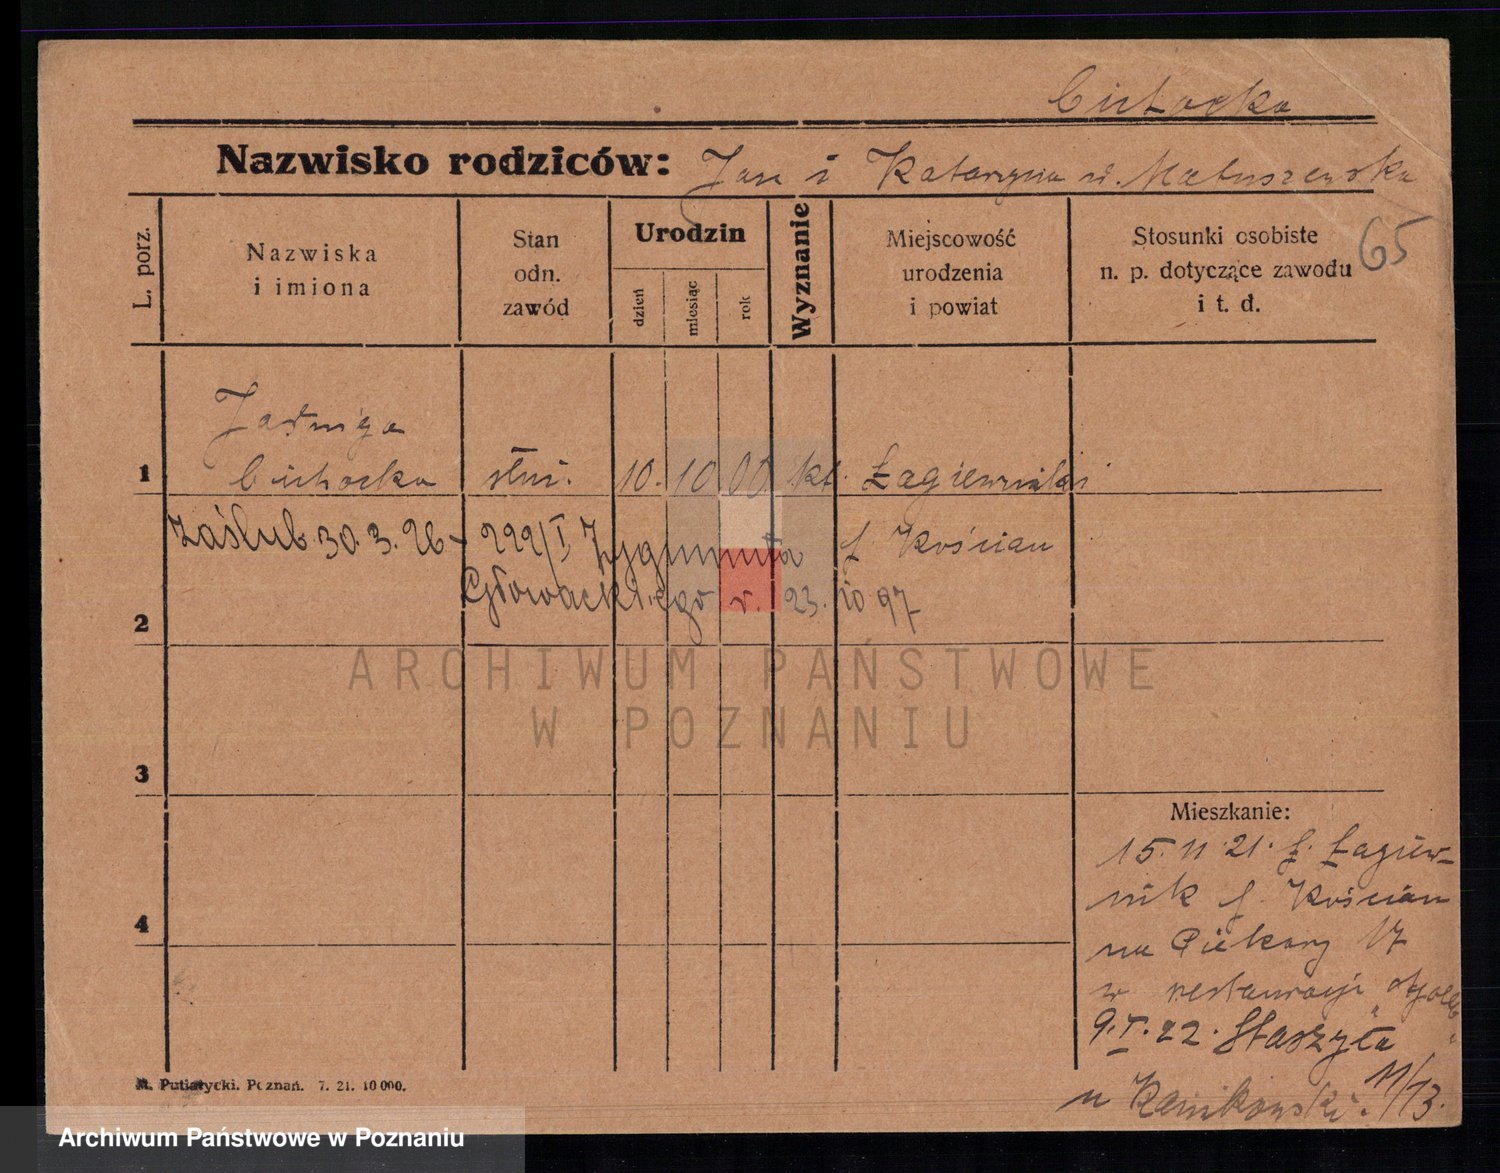 Cichocka
Nazwisko rodziców: Jan i Katarzyna z d. Matuszewska
L. porz.
Nazwiska
i imiona
Stan
odn.
zawód
Urodzin
dzień
miesiąc
rok
Wyznanie
Miejscowość
urodzenia
i powiat
Stosunki osobiste
n. p. dotyczące zawodu
i t. d.
65
Jadwiga
1 Cichocka służ. 10. 10 00 kt. Łagiewniki
zaślub. 30. 3. 26 222/I Zygmunta
p. Kościan
2 Głowackiego r. 23. 10 97
ARCHIWUM PAŃSTWOWE
W POZNANIU
3
Mieszkanie:
15. 11. 21. z Łagiew-
4 nik p. Kościan
na Piekary 17
w restauracji
9. I. 22. Staszyca
u 11/13.
M. Putiatycki. Poznań. 7. 21. 10 000.
Archiwum Państwowe w Poznaniu